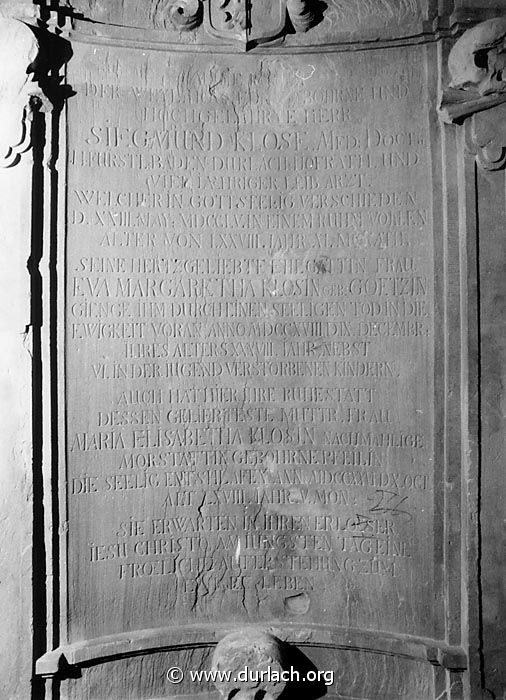 DER WEYLAND HOCHEDELGEBOHRNE UND
HOCHGELAHRTE HERR
SIEGMUND KLOSE, MED: DOCT:
HFÜRSTL: BADEN-DURLACH: HOFRATH, UND
VIELJÆHRIGER LEIB ARZT,
WELCHER IN GOTT SEELIG VERSCHIEDEN
D. XXIII. MAY: MDCCLV. IN EINEM RUHMVOHLEN
ALTER VON LXXVIII. JAHR XI. MONATH.
SEINE HERTZGELIEBTE EHEGATTIN FRAU
EVA MARGARETHA KLOSIN GEB: GOETZIN
GIENGE IHM DURCH EINEN SEELIGEN TOD IN DIE
EWIGKEIT VORAN ANNO MDCCXVIII D IX. DECEMBR:
IHRES ALTERS XXXVIII. JAHR, NEBST
VI. IN DER JUGEND VERSTORBENEN KINDERN.
AUCH HAT HIER IHRE RUHESTATT
DESSEN GELIEBTESTE MUTTR, FRAU
MARIA ELISABETHA KLOSIN NACHMAHLIGE
MORSTATTIN GEBOHRNE PFEILIN
DIE SEELIG ENTSCHLAFEN ANN.
ALT LXVIII. JAHR. V. MON:
SIE ERWARTEN IN IHREN ERLOESER
IESU CHRISTO AM IÜNGSTEN TAG EINE
FROELICHE AUFERSTEHUNG ZUM
LEBEN
© www.durlach.org